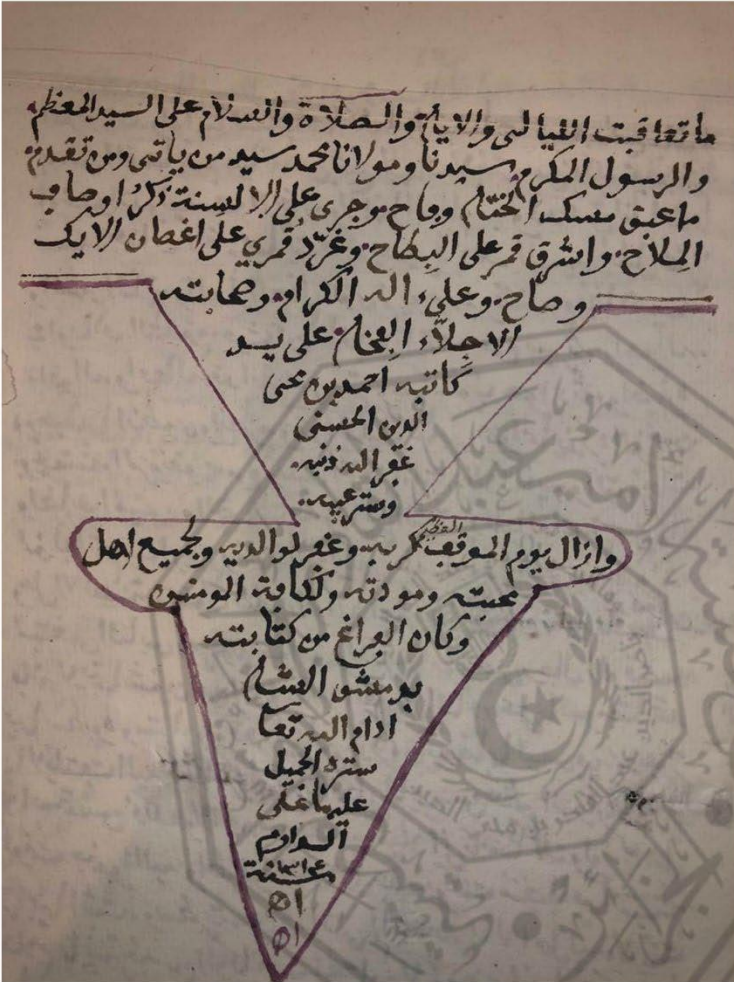 ما تعاقبت الليالي والايام والصلاة والسلام على السيد المعظم
والرسول المكرم سيدنا ومولانا محمد سيد من ياتي ومن تقدم
ما عبق مسك الختام وفاح وجرى على الالسنة ذكر اوصاف
الملاح واشرق قمر على البطاح وغرد قمري على اغصان الايك
وصاح وعلى اله الكرام وصحابته
الاجلاء الفخام على يد
كاتبه احمد بن محي
الدين الحسني
غفر الله ذنبه
وستر عيبه
وازال يوم الموقف العظيم كربه وغفر لوالديه ولجميع اهل
محبته ومودته ولكافة المومنين
وكان الفراغ من كتابته
بدمشق الشام
ادام الله تعا
ستره الجميل
عليها على
الدوام
سنة
اه
اه
امير عبد